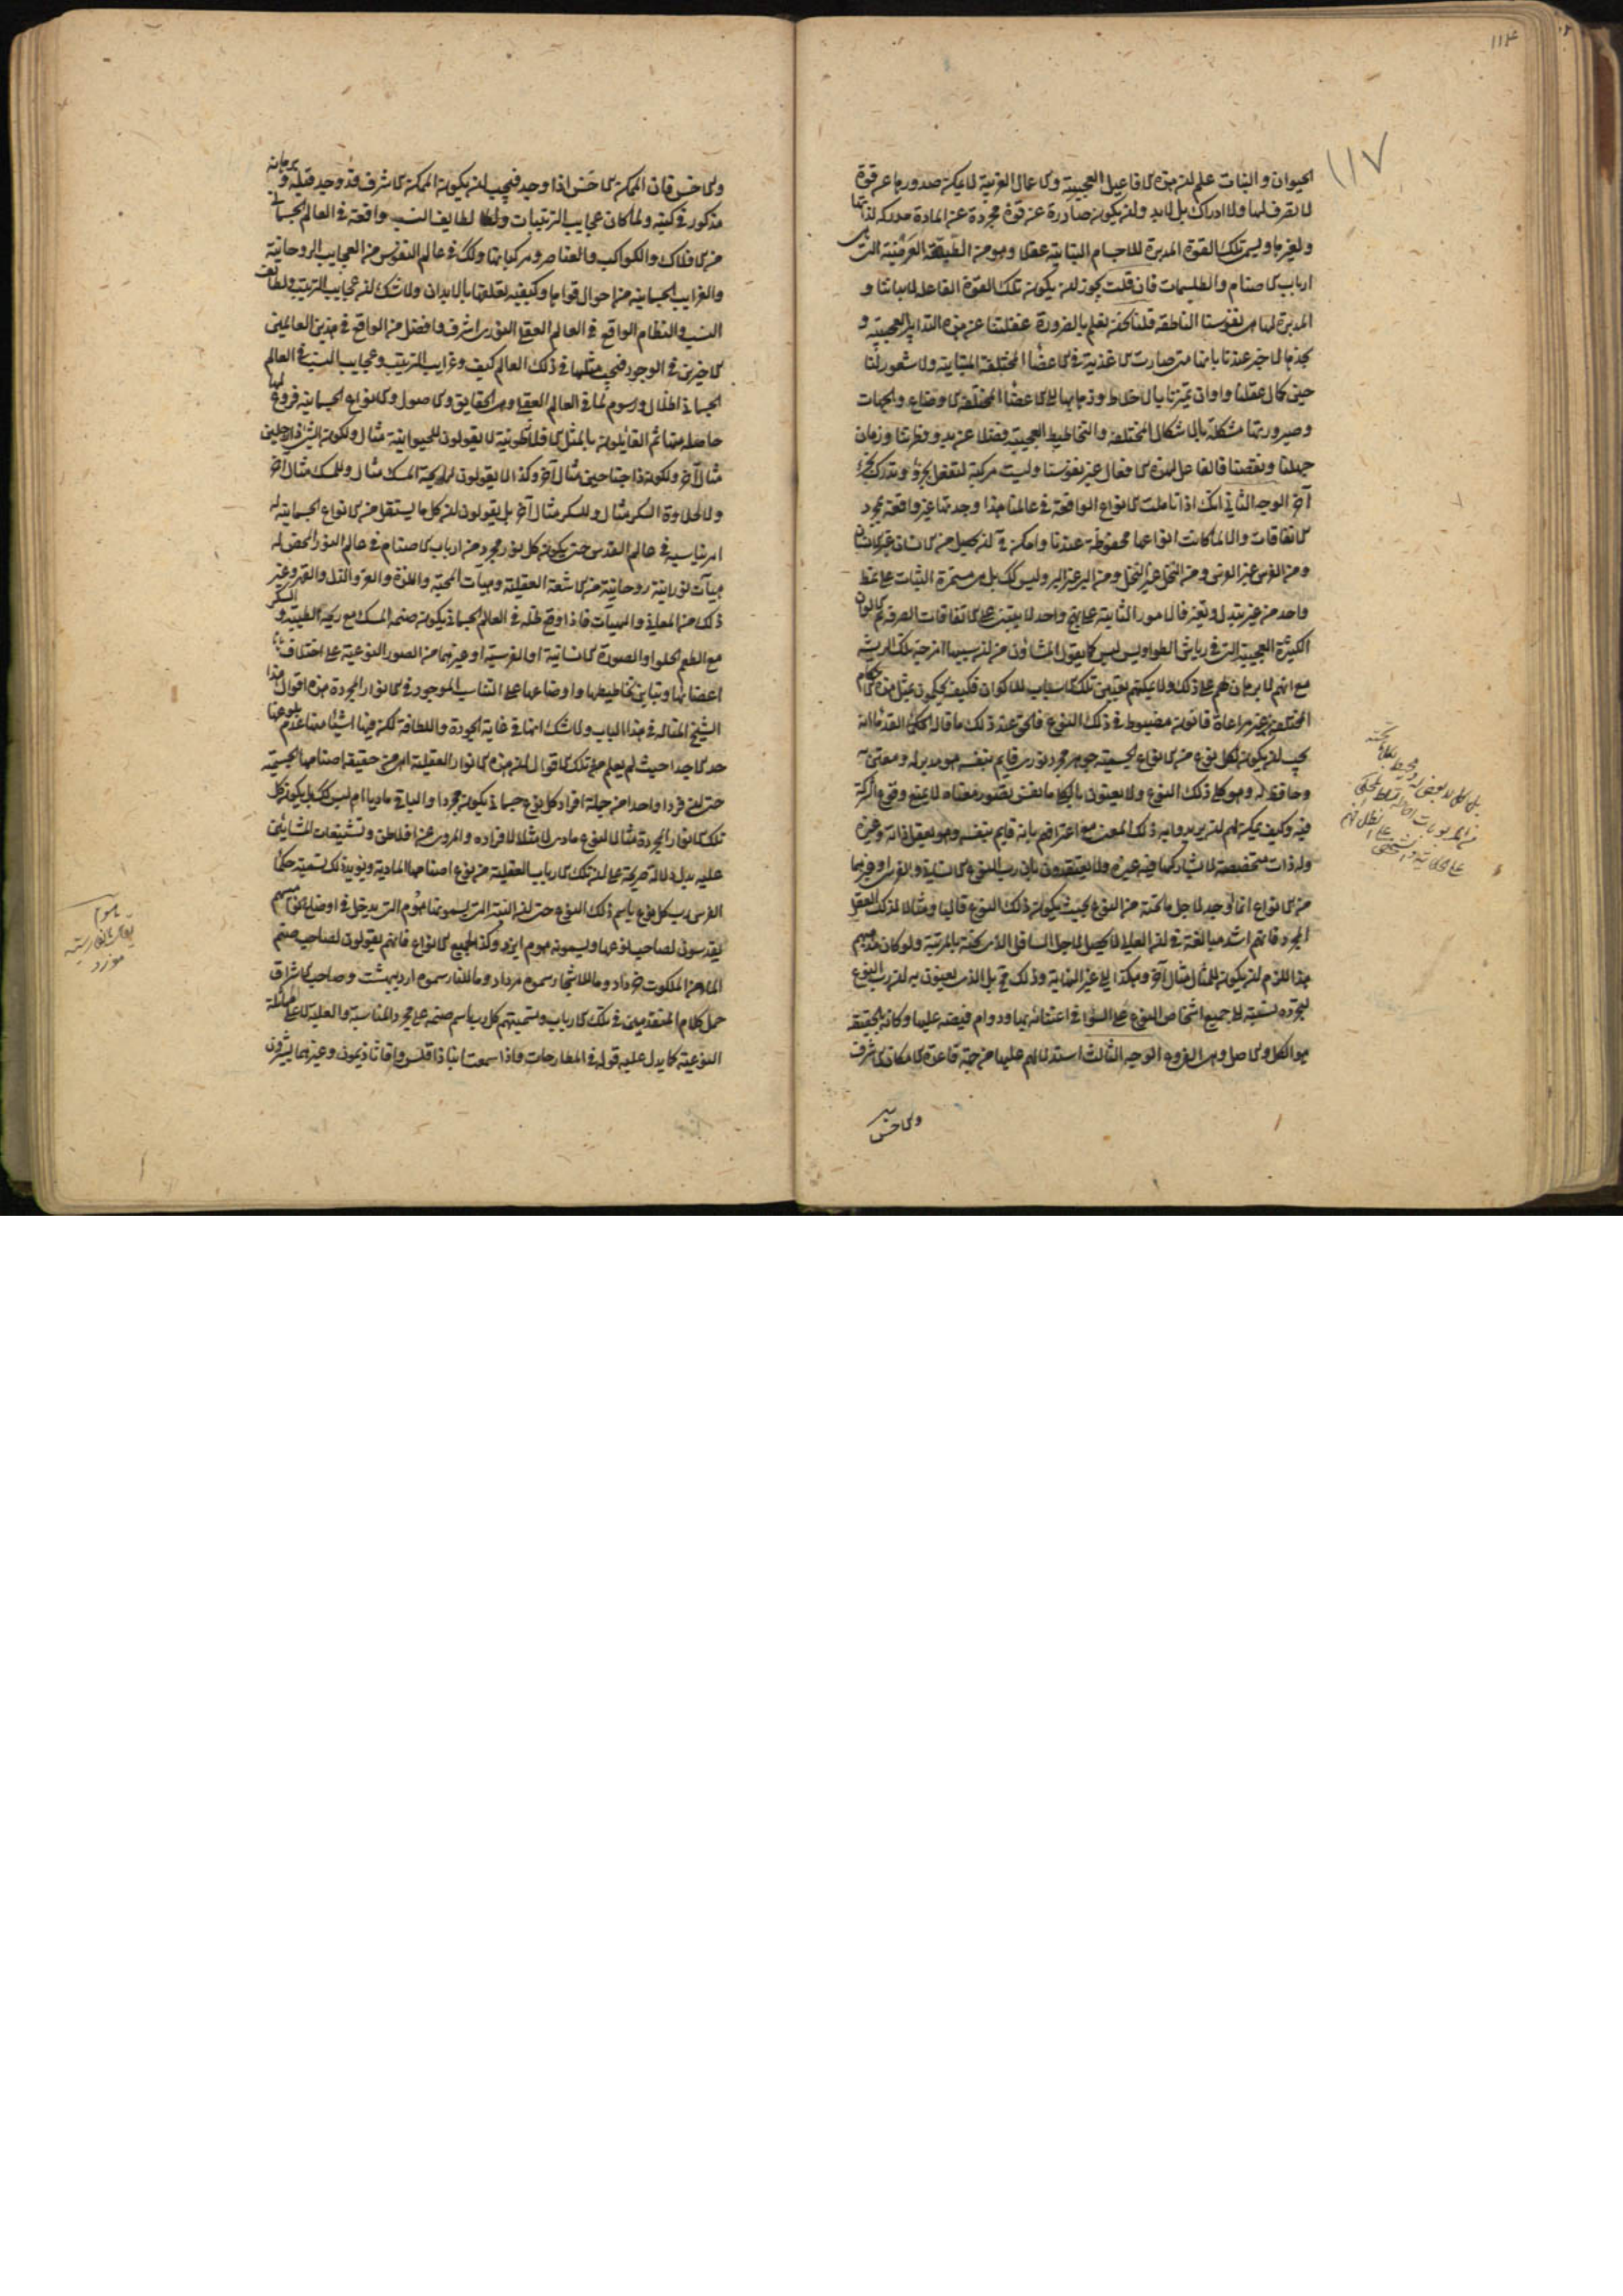 ١١٤
١١٧
الحيوان والنبات علم ان هذه الافاعيل العجيبة والاعمال الغريبة لا يمكن صدورها عن قوة
لا تصرف لها ولا ادراك بل لابد وان يكون صادرة عن قوة مجردة عن المادة مدركة لذاتها
ولغيرها ويسمى تلك القوة المدبرة للاجسام النباتية عقلا وهو من الطبقة العرضية التي هي
ارباب الاصنام والطلسمات فان قلت يجوز ان يكون تلك القوة الفاعلة لابداننا و
المدبرة لها هي نفوسنا الناطقة قلنا نحن نعلم بالضرورة غفلتنا عن هذه التدابير العجيبة و
لا خبر عندنا بانها متى صارت الاغذية في الاعضاء المختلفة المتباينة ولا شعور لنا
حين كمال عقلنا واوان تميزنا بالاخلاط وذهابها الى الاعضاء المختلفة الاوضاع والجهات
وصيرورتها مشكلة بالاشكال المختلفة والتخاطيط العجيبة فضلا عن بدو فطرتنا وزمان
جهلنا ونقصنا فالفاعل لهذه الافعال غير نفوسنا وليست مركبة لتفعل بجزء وتدرك بجزء
آخر الوجه الثاني انك اذا تاملت الانواع الواقعة في عالمنا هذا وجدتها غير واقعة بمجرد
الاتفاقات والا لما كانت انواعها محفوظة عندنا وامكن ان يحصل من الانسان غير الانسان
ومن الفرس غير الفرس ومن النخل غير النخل ومن البر غير البر وليس كك بل هي مستمرة الثبات على نمط
واحد من غير تبدل وتغير فالامور الثابتة على نهج واحد لا يبتني على الاتفاقات الصرفة ثم الالوان
الكثيرة العجيبة التي في رياش الطواويس ليس كما يقول المشاؤن من ان سببها امزجة تلك الريشة
مع انهم لا برهان لهم على ذلك ولا يمكنهم تعيين تلك الاسباب للالوان فكيف يحكمون بمثل هذه الاحكام
المختلفة من غير مراعاة قانون مضبوط في ذلك النوع فالحق عند ذلك ما قاله الحكماء القدماء انه
يجب ان يكون لكل نوع من الانواع الجسمية جوهر مجرد نوري قايم بنفسه هو مدبر له ومعتن به
وحافظ له وهو كلي ذلك النوع ولا يعنون بالكلي ما نفس تصور معناه لا يمنع وقوع الشركة
فيه وكيف يمكن لهم ان يريدوا به ذلك المعنى مع اعترافهم بانه قايم بنفسه وهو يعقل ذاته وغيره
وله ذات متخصصة لا يشاركها فيه غيره ولا يعتقدون بان رب النوع الانساني او الفرسي او غيرهما
من الانواع انما وجد لاجل ما تحته من النوع بحيث يكون ذلك النوع قالبا ومثالا لذلك العقل
المجرد فانهم اشد مبالغة في ان العالي لا يحصل لاجل السافل الذي تحته بالمرتبة ولو كان مذهبهم
هذا للزم ان يكون للمثال مثال آخر وهكذا الى غير النهاية وذلك مح بل الذي يعنون به ان رب النوع
لتجرده نسبته الى جميع اشخاص النوع على السواء في اعتنائه بها ودوام فيضه عليها وكانه بالحقيقة
هو الكل والاصل وهي الفروع الوجه الثالث استدلالهم عليها من جهة قاعدة الامكان الاشرف
والاخس
والاخس فان الممكن الاخس اذا وجد فيجب ان يكون الممكن الاشرف قد وجد قبله وبرهانه
مذكور في كتبه ولما كان عجايب الترتيبات ولطايف النسب واقعة في العالم الجسماني
من الافلاك والكواكب والعناصر ومركباتها وكك في عالم النفوس من العجايب الروحانية
والغرايب الجسمانية من احوال قواها وكيفية تعلقها بالابدان ولا شك ان عجايب الترتيب ولطايف
النسب والنظام الواقع في العالم العقلي النوري اشرف وافضل من الواقع في هذين العالمين
الاخيرين في الوجود فيجب مثلها في ذلك العالم كيف وغرايب الترتيب وعجايب النسب في العالم
الجسماني اظلال ورسوم لما في العالم العقلي وهي الحقايق والاصول والانواع الجسمانية فروع لها
حاصلة منها ثم القائلون بالمثل الافلاطونية لا يقولون للحيوانية مثال ولكون الشيء ذا رجلين
مثال آخر ولكون ذا جناحين مثال آخر وكذا لا يقولون لرايحة المسك مثال وللمسك مثال آخر
ولا لحلاوة السكر مثال وللسكر مثال آخر بل يقولون ان كل ما يستقل من الانواع الجسمانية له
امر يناسبه في عالم القدس حتى يكون كل نور مجرد من ارباب الاصنام في عالم النور المحض له
هيآت نورانية روحانية من الاشعة العقلية وهيات المحبة واللذة والعز والذل والقهر وغير
ذلك من المعاني والهيآت فاذا وقع ظله في العالم الجسماني يكون صنمه المسك مع ريحه الطيبة والسكر
مع الطعم الحلو او الصورة الانسانية او الفرسية او غيرهما من الصور النوعية على اختلاف
اعضائها وتباين تخاطيطها واوضاعها على التناسب الموجود في الانوار المجردة هذه اقوال
الشيخ المتاله في هذا الباب ولا شك انها في غاية الجودة واللطافة لكن فيها اشياء منها عدم بلوغها
حد الاجداء حيث لم يعلم من تلك الاقوال ان هذه الانوار العقلية اهي من حقيقة اصنامها الجسمية
حتى ان فردا واحدا من جملة افراد كل نوع جسماني يكون مجردا والباقي ماديا ام ليس كك بل يكون كل من
تلك الانوار المجردة مثالا لنوع مادي لا مثلا لافراده والمروي عن افلاطن وتشنيعات المشائين
عليه يدل دلالة صريحة على ان تلك الارباب العقلية من نوع اصنامها المادية ويؤيد ذلك تسمية حكماء
الفرس رب كل نوع باسم ذلك النوع حتى ان النبتة التي يسمونها هوم التي يدخل في اوضاع نواميسهم
يقدسون لصاحب نوعها ويسمونه هوم ايزد وكذا لجميع الانواع فانهم يقولون لصاحب صنم
الماء من الملكوت خرداد وما للاشجار سموه مرداد وما للنار سموه ارديبهشت وصاحب الاشراق
حمل كلام المتقدمين في تلك الارباب وتسميتهم كل رب باسم صنمه على مجرد المناسبة والعلية لا على المماثلة
النوعية كما يدل عليه قوله في المطارحات واذا سمعت انباذقلس واغاثاذيمون وغيرهما يشيرون